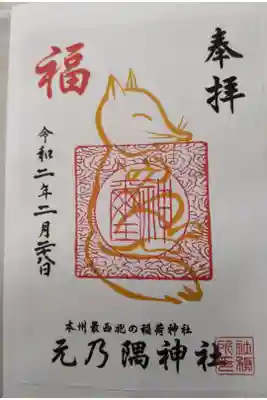 奉拝
福
令和二年二月二八日
本州最西北の稲荷神社
元乃隅神社